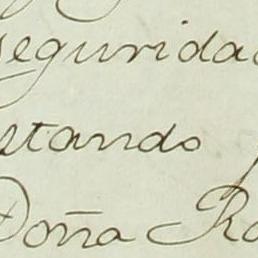 seguridad
stando
Doña Ro